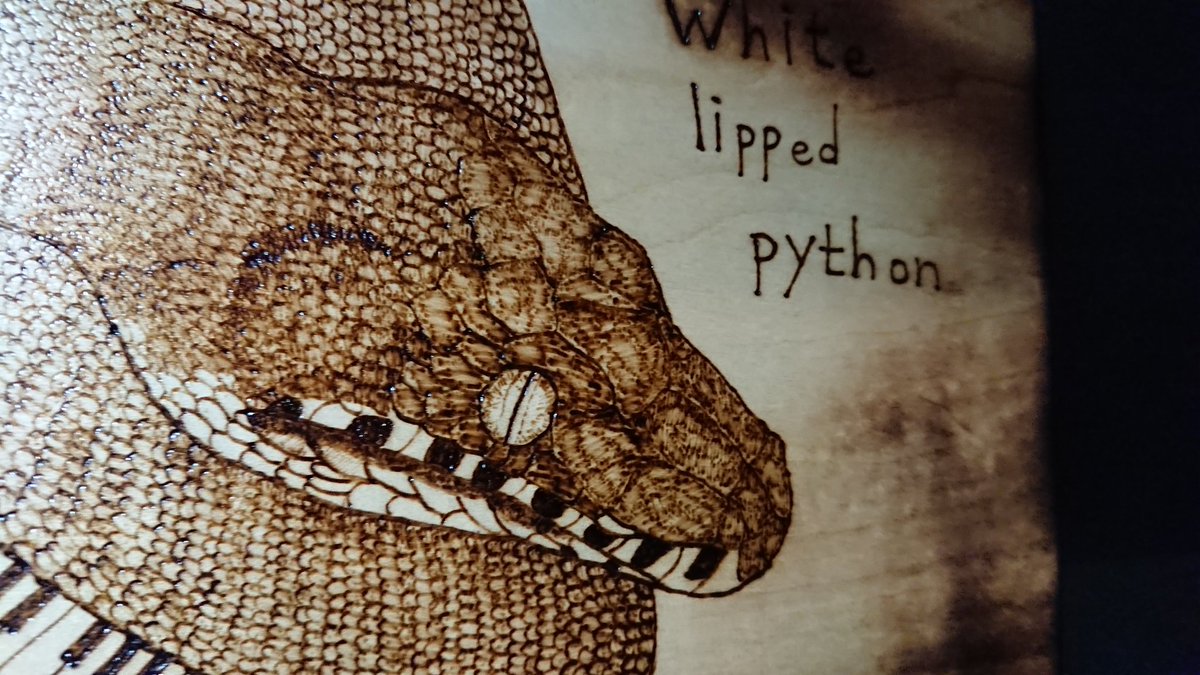 White
lipped
python